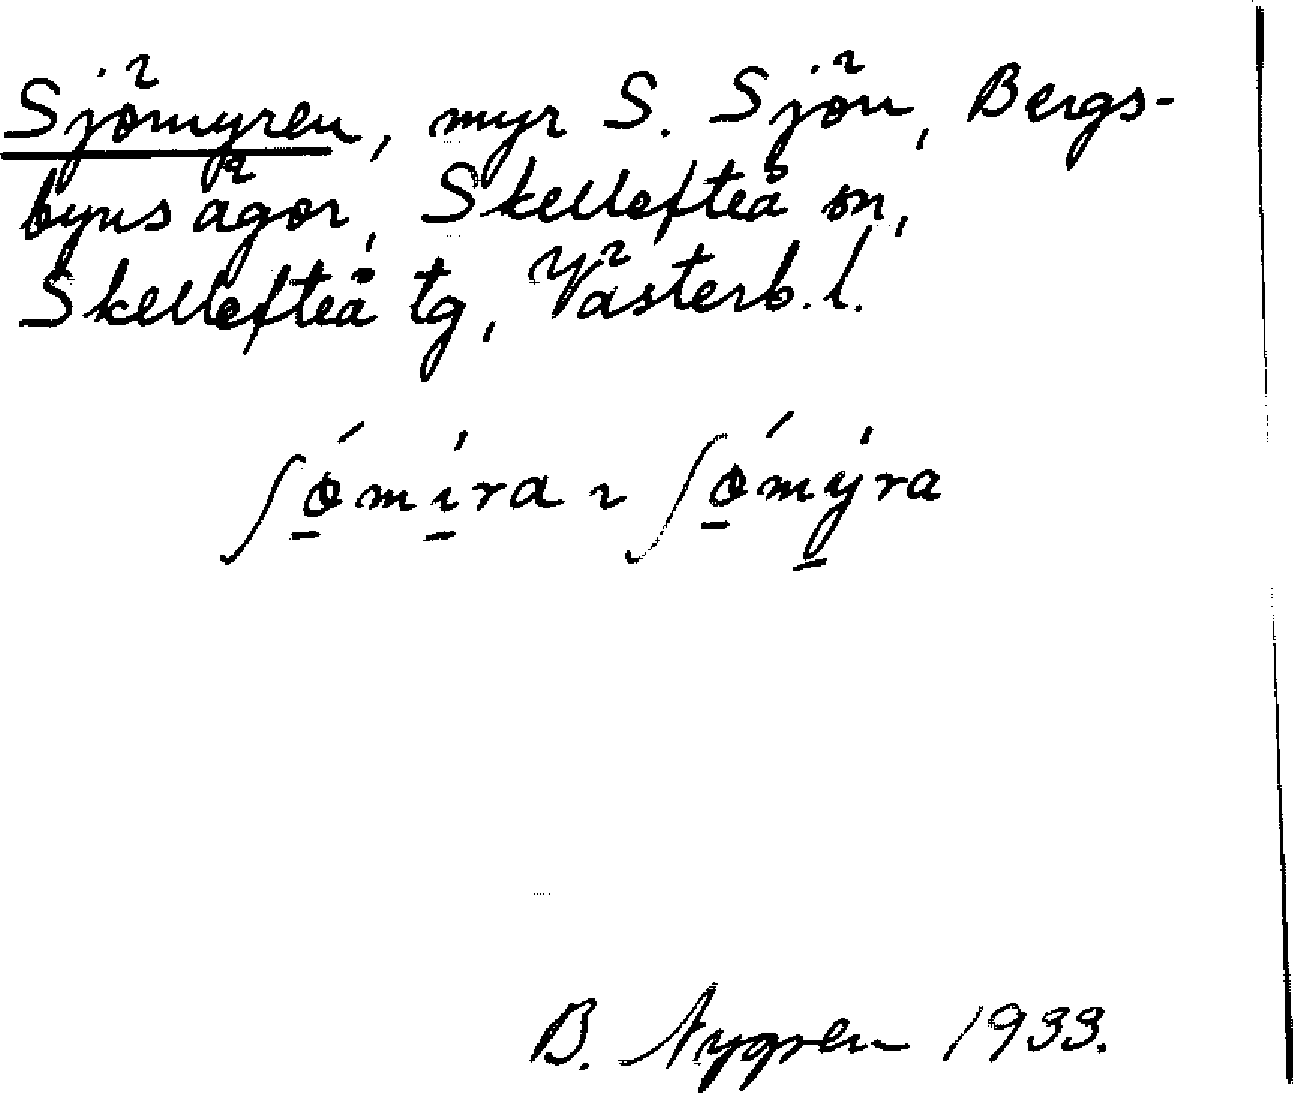 Sjömyren, myr S. Sjön, Bergs-
byns ägor, Skellefteå sn,
Skellefteå tg, Västerb. l.
ʃǿ̱mı̱́ra ɿ ʃǿ̱mý̱ra
B. Nygren 1933.